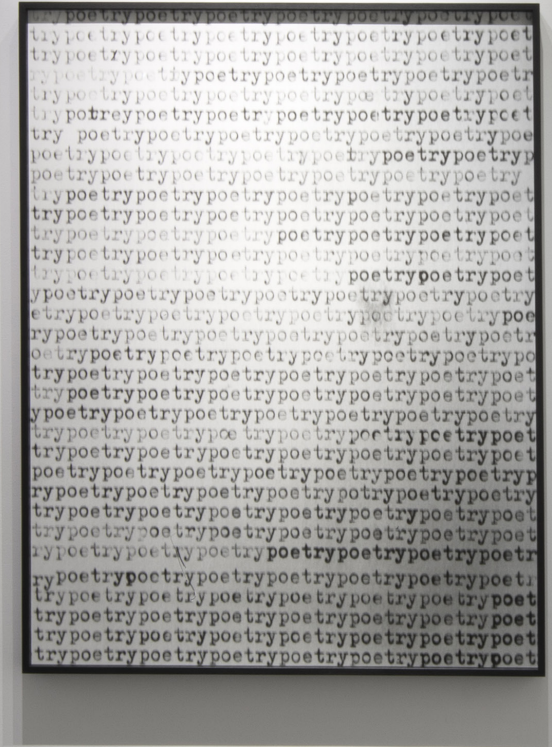 trypoetrypoetrypoetrypoetrypoetrypoetrypoet
trypoetrypoetrypoetrypoetrypoetrypoetrypoet
trypoetrypoetrypoetrypoetrypoetrypoetrypoet
rypoetrypoetrypoetrypoetrypoetrypoetrypoetr
trypoetrypoetrypoetrypoetrypoe trypoetrypoet
trypotreypoetrypoetrypoetrypoetrypoetrypoet
try poetrypoetrypoetrypoetrypoetrypoetrypoe
poetrypoetrypoetrypoetrypoetrypoetrypoetryp
poetrypoetrypoetrypoetrypoetrypoetrypoetry
trypoetrypoetrypoetrypoetrypoetrypoetrypoet
trypoetrypoetrypoetrypoetrypoetrypoetrypoet
trypoetrypoetrypoetrypoetrypoetrypoetrypoet
trypoetrypoetrypoetrypoetrypoetrypoetrypoet
trypoetrypoetrypoetrypoetrypoetrypoetrypoet
ypoetrypoetrypoetrypoetrypoetrypoetrypoetry
etrypoetrypoetrypoetrypoetrypoetrypoetrypoe
rypoetrypoetrypoetrypoetrypoetrypoetrypoetr
oetrypoetrypoetrypoetrypoetrypoetrypoetrypo
trypoetrypoetrypoetrypoetrypoetrypoetrypoet
trypoetrypoetrypoetrypoetrypoetrypoetrypoet
ypoetrypoetrypoetrypoetrypoetrypoetrypoetry
trypoetrypoetrypoe trypoetrypoetrypoetrypoet
trypoetrypoetrypoetrypoetrypoetrypoetrypoet
poetrypoetrypoetrypoetrypoetrypoetrypoetryp
rypoetrypoetrypoetrypoetrypotrypoetrypoetry
trypoetrypoetrypoetrypoetrypoetrypoetrypoet
trypoetrypoetrypoetrypoetrypoetrypoetrypoet
rypoetrypoetrypoetrypoetrypoetrypoetrypoetr
rypoetrypoetrypoetrypoetrypoetrypoetrypoetr
trypoetrypoetrypoetrypoetrypoetrypoetrypoet
trypoetrypoetrypoetrypoetrypoetrypoetrypoet
trypoetrypoetrypoetrypoetrypoetrypoetrypoet
trypoetrypoetrypoetrypoetrypoetrypoetrypoet